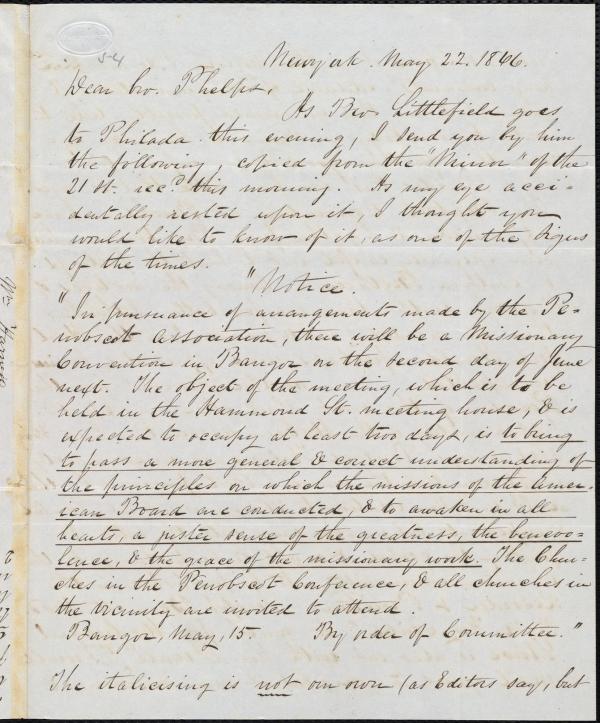 54
Newyork. May 22. 1846.
Dear bro. Phelps,
As Bro. Littlefield goes
to Philada. this evening, I send you by him
the following, copied from the "Mirror" of the
21st. recd. this morning. As my eye acci-
dentally rested upon it, I thought you
would like to know of it, as one of the signs
of the times.
"Notice.
"In pursuance of arrangements made by the Pe-
nobscot Association, there will be a Missionary
Convention in Bangor on the second day of June
next. The object of the meeting, which is to be
held in the Hammond St. meeting house, & is
expected to occupy at least two days, is to bring
to pass a more general & correct understanding of
the principles on which the missions of the Amer-
ican Board are conducted, & to awaken in all
hearts, a juster sense of the greatness, the benevo-
lence, & the grace of the missionary work. The Chur-
ches in the Penobscot Conference, & all churches in
the vicinity are invited to attend.
Bangor, May, 15. By order of Committee."
The italicising is not our own (as Editors say, but